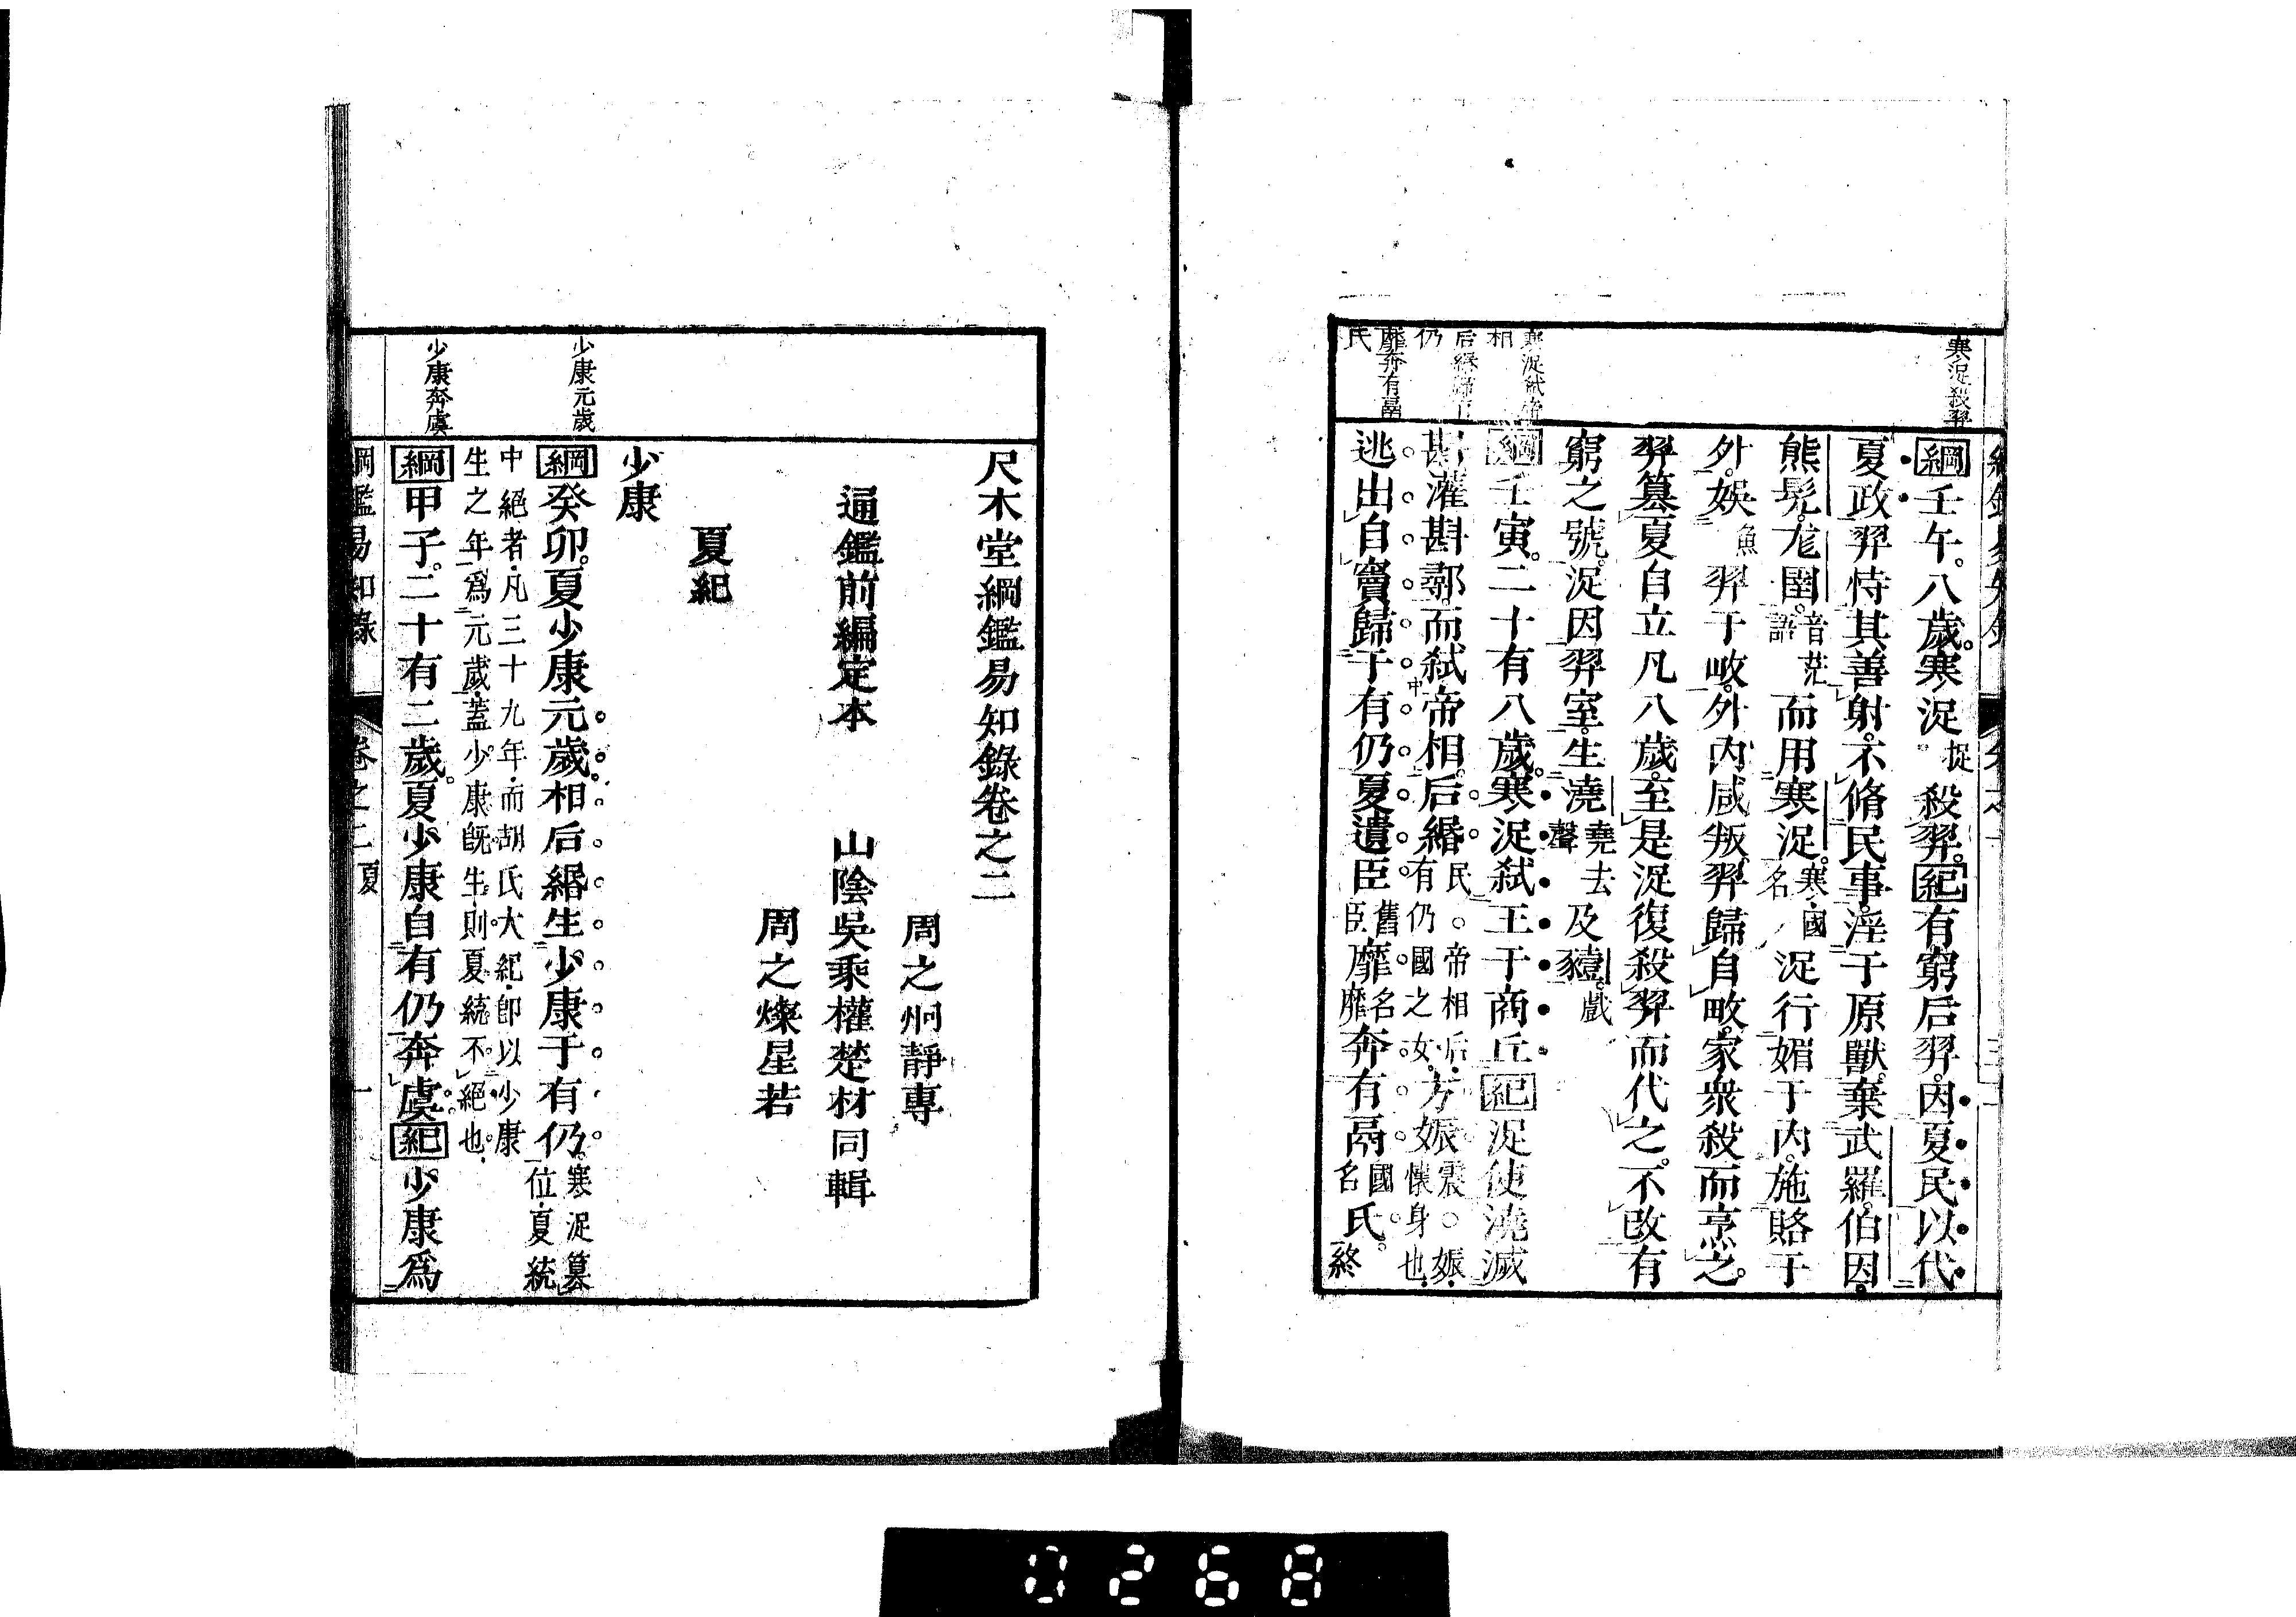 寒浞殺羿
綱壬午。八歲。寒浞浞殺羿。紀有窮后羿。因夏民以代
夏政。羿恃其善射。不脩民事。淫于原獸。棄武羅。伯因。
熊髡。尨圉。音茫語而用寒浞。寒。國名浞行媚于內。施賂于
外。娛魚羿于畋。外內咸叛。羿歸自畋。家衆殺而烹之。
羿篡夏自立凡八歲。至是浞復殺羿而代之。不改有
窮之號。浞因羿室。生澆堯去聲及豷。戲
寒浞弒帝相
后緡歸有仍
靡奔有鬲氏
綱壬寅。二十有八歲。寒浞弒王于商丘紀浞使澆滅
斟灌斟鄩。而弒帝相。后緡民。帝相后。有仍國之女。方娠震。娠。懷身也。
逃出自竇。歸于有仍。夏遺臣舊臣靡名靡奔有鬲國名氏。終
尺木堂綱鑑易知錄卷之二
周之炯靜專
通鑑前編定本 山陰吳乘權楚材同輯
周之燦星若
夏紀
少康
少康元歲
綱癸卯。夏少康元歲。相后緡生少康于有仍。寒浞篡位。夏統
中絕者。凡三十九年。而胡氏大紀。卽以少康
生之年。爲元歲。蓋少康旣生。則夏統不絕也。
少康奔虞
綱甲子。二十有二歲。夏少康自有仍奔虞。紀少康爲
綱鑑易知錄 卷之二 夏 一
0268